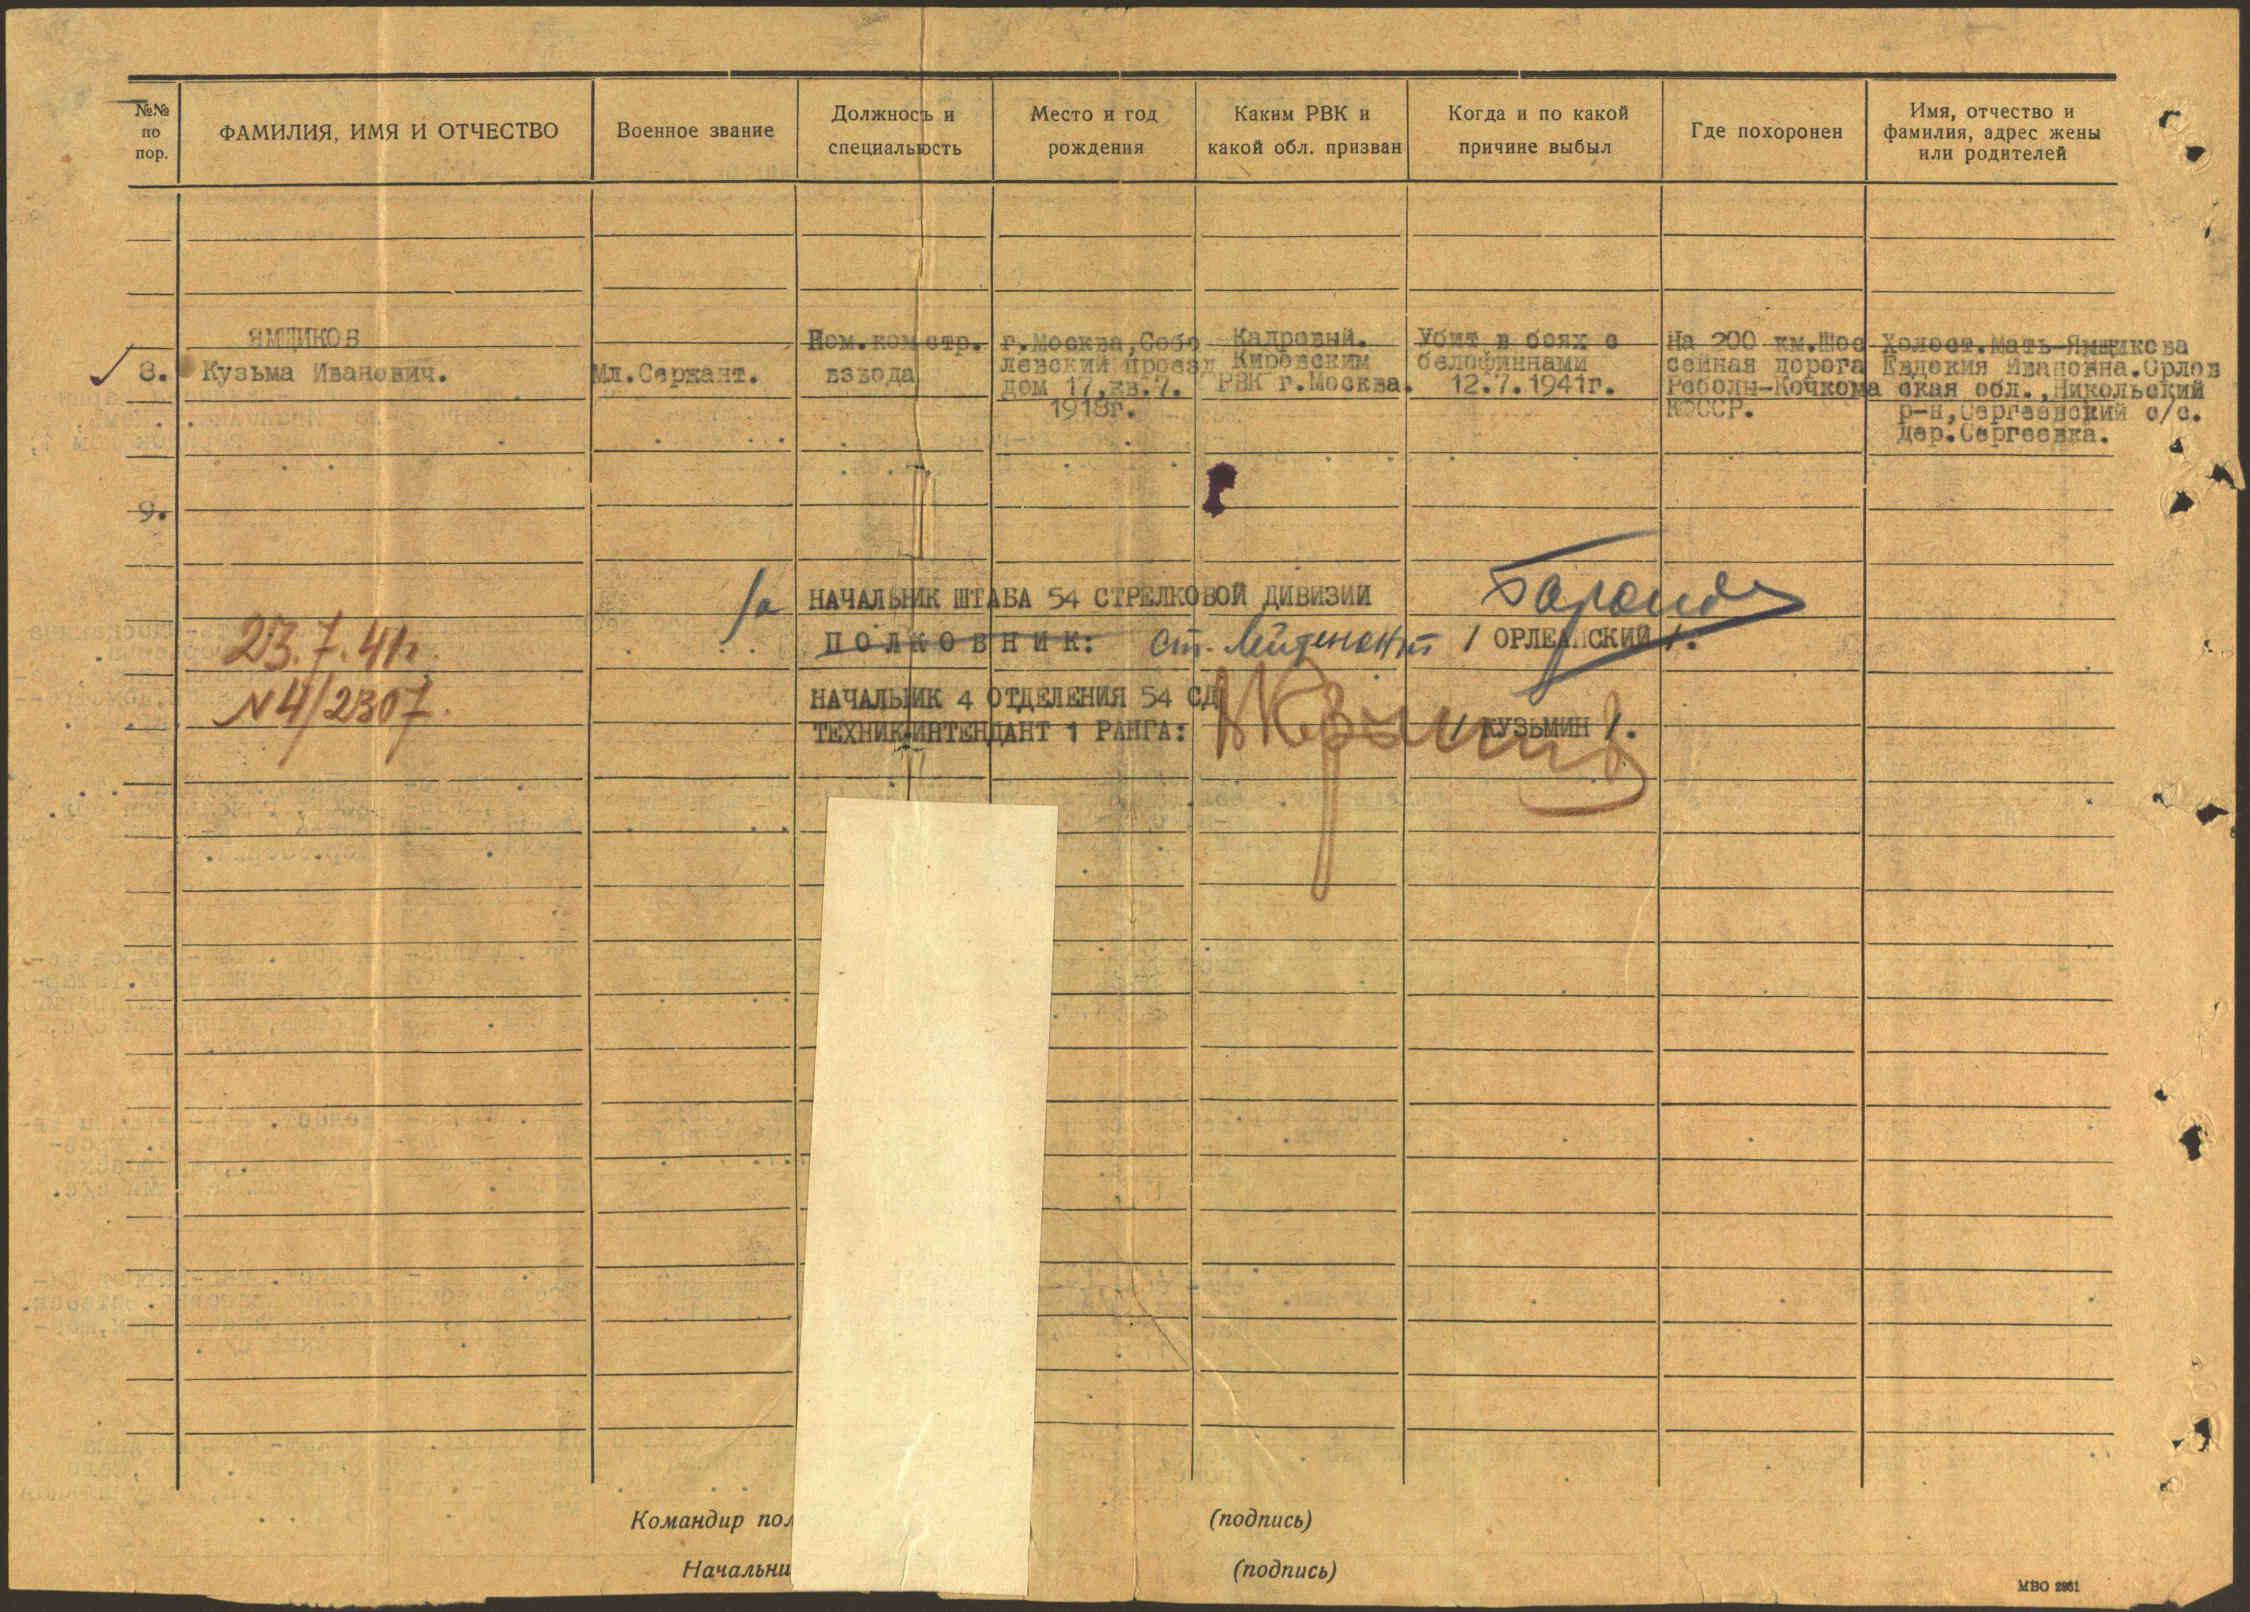 №№ по пор.
ФАМИЛИЯ, ИМЯ И ОТЧЕСТВО
Военное звание
Должность и специальность
Место и год рождения
Каким РВК и какой обл. призван
Когда и по какой причине выбыл
Где похоронен
Имя, отчество и фамилия, адрес жены или родителей
8.
ЯМЩИКОВ
Кузьма Иванович.
Мл.Сержант.
Пом.ком стр.
взвода
г.Москва, Собо
левский проезд
дом 17, кв.7.
1918г.
Кадровый.
Кировским
РВК г.Москва.
Убит в боях с
белофиннами
12.7.1941г.
На 200 км.Шос
сейная дорога
Реболы-Кочкома
КФССР.
Холост.Мать-Ямщикова
Евдокия Ивановна.Орлов
ская обл.,Никольский
р-н,Сергеевский с/с.
дер.Сергеевка.
9.
НАЧАЛЬНИК ШТАБА 54 СТРЕЛКОВОЙ ДИВИЗИИ
ПОЛКОВНИК: ст. лейтенант / ОРЛЕАНСКИЙ /.
23.7.41г.
N4/2307.
НАЧАЛЬНИК 4 ОТДЕЛЕНИЯ 54 СД
ТЕХНИК-ИНТЕНДАНТ 1 РАНГА: / КУЗЬМИН /.
Командир пол
(подпись)
Начальни
(подпись)
МВО 2961